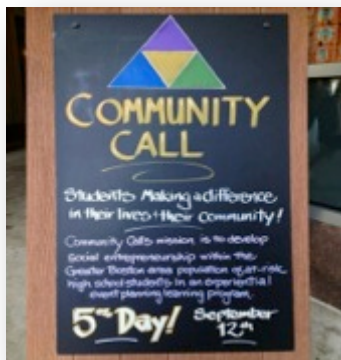 COMMUNITY
CALL
Students Making a difference
in their lives + their community!
Community Calls mission is to develop
Social entrepreneurship within the
Greater Boston area population of at-risk
high school students in an experiential
event planning learning program.
5% Day! September
12th